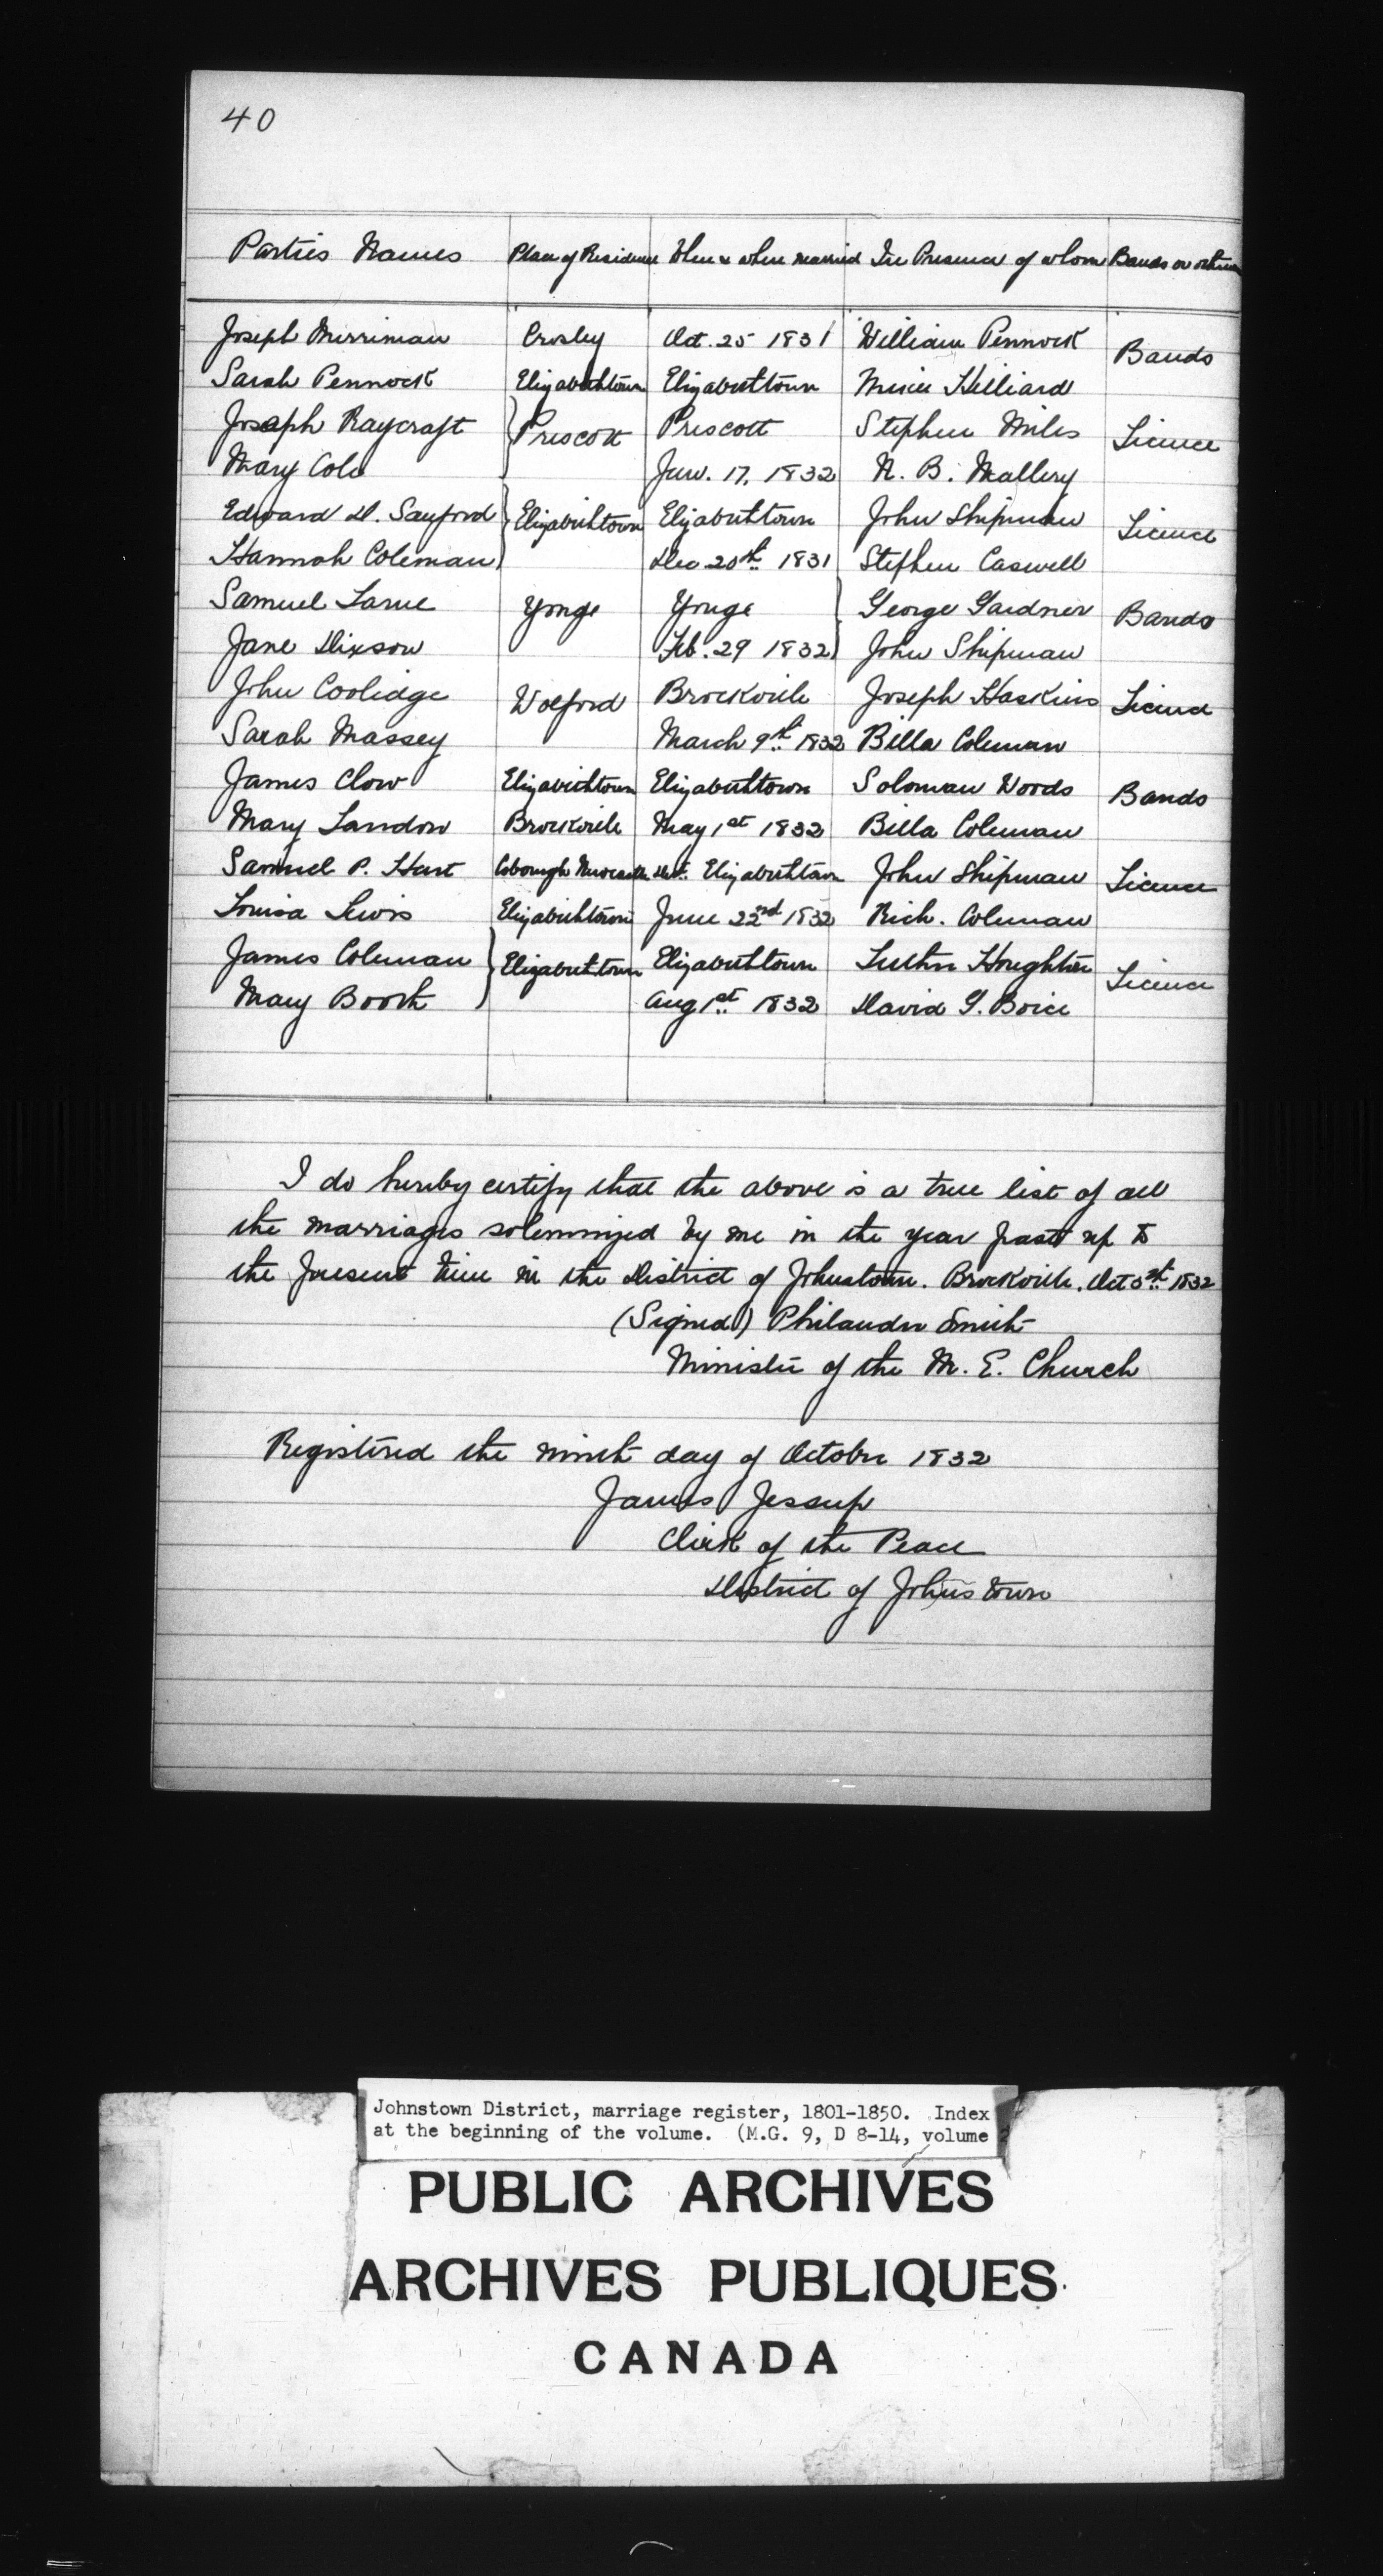 40
Parties Names Place of Residence When & where married In Presence of whom Bands or
Joseph Merriman Crosley Oct. 25 1831 William Pennock Bands
Sarah Pennock Elizabethtown Elizabethtown Hilliard
Joseph Raycraft Prescott Prescott Stephen Miles Licence
Mary Cole Jan. 17, 1832 N. B. Mallery
Edward D. Sanford Elizabethtown Elizabethtown John Shipman Licence
Hannah Coleman Dec 20th 1831 Stephen Caswell
Samuel Larue Yonge Yonge George Gardner Bands
Jane Dixson Feb. 29 1832 John Shipman
John Coolidge Wolford Brockville Joseph Haskins Licence
Sarah Massey March 9th 1832 Billa Coleman
James Clow Elizabethtown Elizabethtown Soloman Woods Bands
Mary Landon Brockville May 1st 1832 Billa Coleman
Samuel P. Hart Newcastle Dist. Elizabethtown John Shipman Licence
Louisa Lewis Elizabethtown June 22nd 1832 Rich. Coleman
James Coleman Elizabethtown Elizabethtown Luther Houghton Licence
Mary Booth Aug 1st 1832 David G. Boice
I do hereby certify that the above is a true list of all
the marriages solemnized by me in the year past up to
the present time in the District of Johnstown. Brockville. Oct 1832
(Signed) Philander Smith
Minister of the M. E. Church
Registered the ninth day of October 1832
James Jessup
Clerk of the Peace
District of Johnstown
Johnstown District, marriage register, 1801-1850. Index
at the beginning of the volume. (M.G. 9, D 8-14, volume 2
PUBLIC ARCHIVES
ARCHIVES PUBLIQUES
CANADA